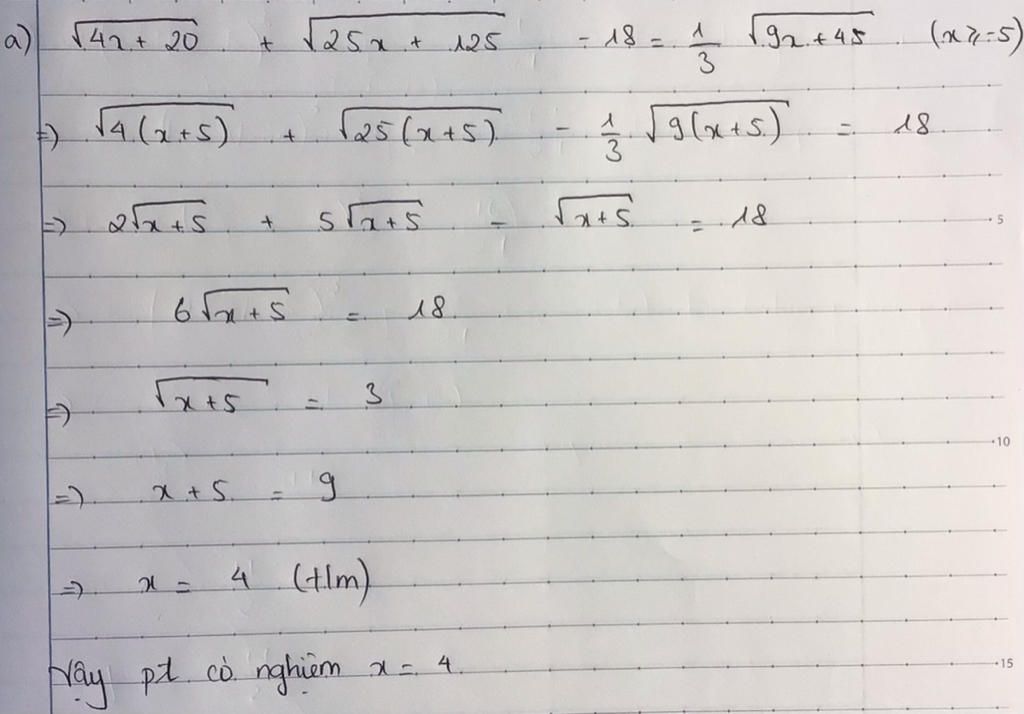 a) √(4x + 20) + √(25x + 125) - 18 = 1/3 √(9x + 45) (x ≥ -5)
=> √(4(x+5)) + √(25(x+5)) - 1/3 √(9(x+5)) = 18
=> 2√(x+5) + 5√(x+5) - √(x+5) = 18
5
=> 6√(x+5) = 18
=> √(x+5) = 3
10
=> x + 5 = 9
=> x = 4 (t/m)
Vậy pt có nghiệm x = 4
15